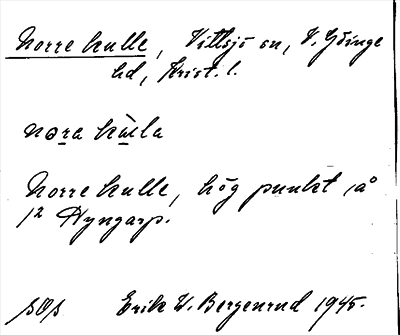 Norre kulle, Vittsjö sn, V. Göinge
hd, Krist. l.
nora kùla
Norre kulle, hög punkt på
1² Hyngarp.
sOs Erik W. Bergenrud 1945.